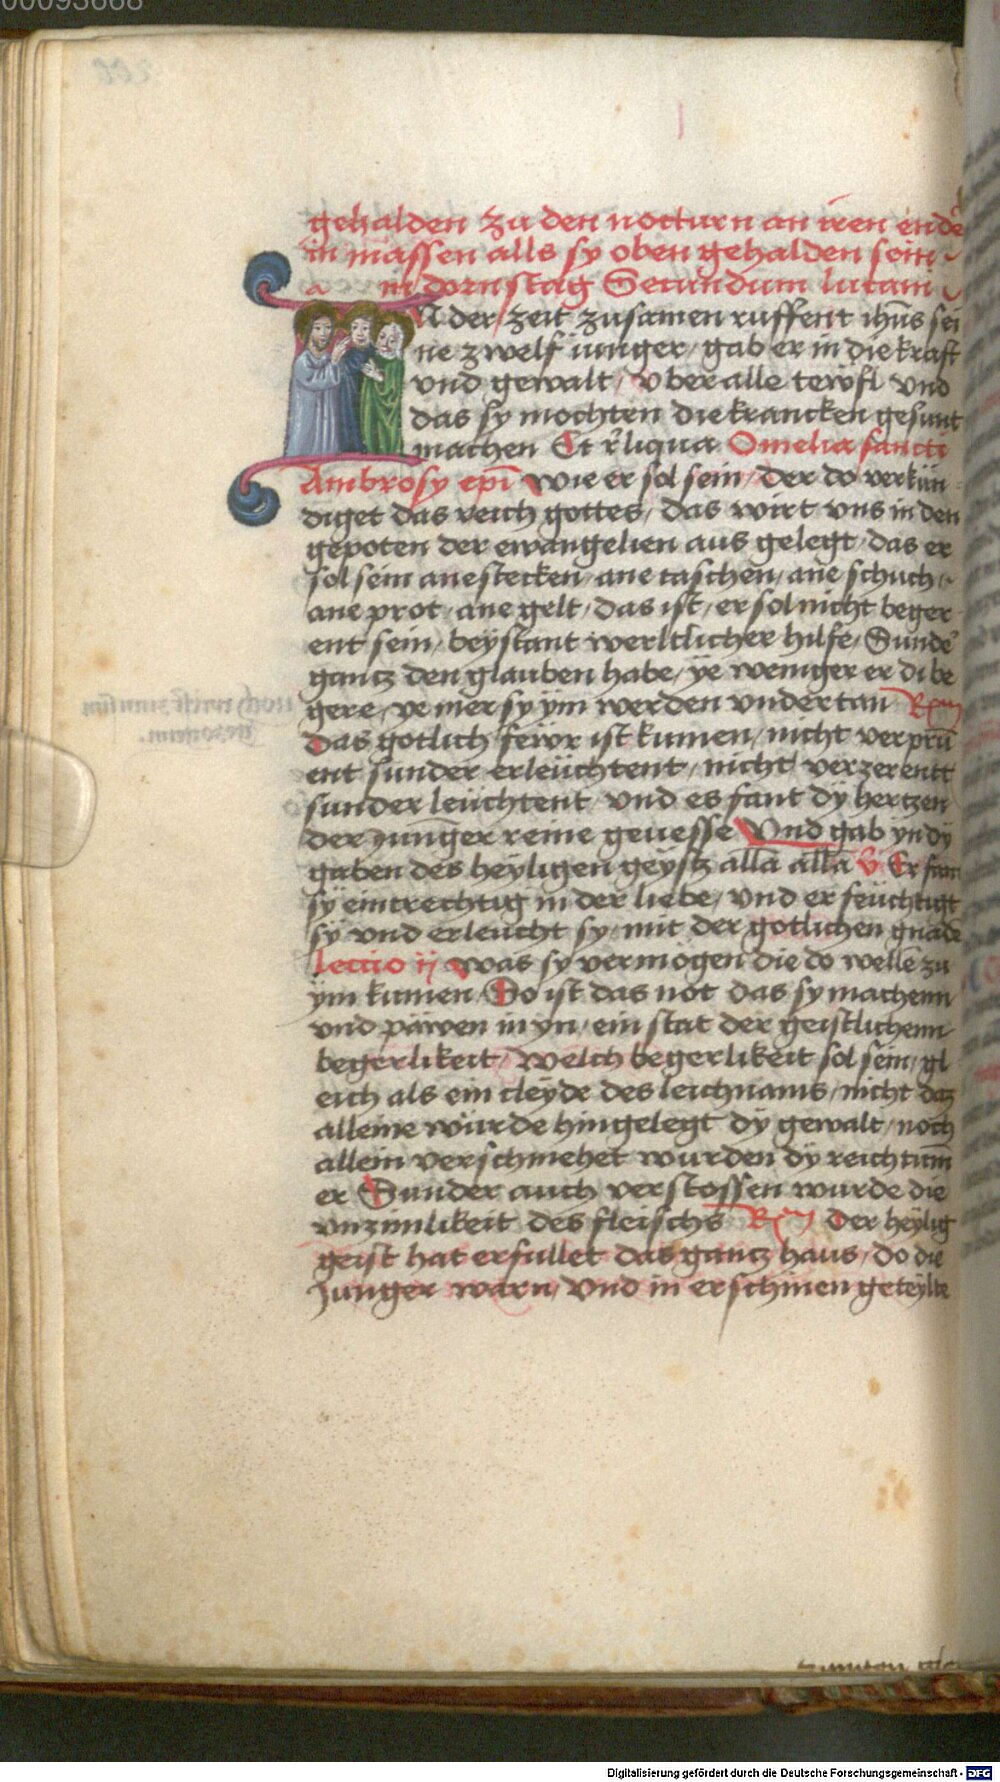 gehalden zu den nocturn an iren ende
in massen alls sy oben gehalden sein
a m dornstag Secundum lucam
N der zeit zusamen ruffent ihūs sei
ne zwelf iunger / gab er in die kraft
vnd gewalt / vber alle tewfl vnd
das sy mochten die krancken gesunt
machen Et rliqua Omelia sancti
Ambrosy epi Wie er sol sein / der do verkün
diget das reich gottes / das wirt vns in den
gepoten der ewangelien aus gelegt / das er
sol sein ane stecken / ane taschen / ane schuch /
ane prot / ane gelt / das ist / er sol nicht beger
ent sein / beystant werltlicher hilfe / Sunder
gancz den glauben habe / ye weniger er di be
gere / ye mer sy ym werden vndertan Rm
Das gotlich fewr ist kumen / nicht verprū
ent sunder erleüchtent / nicht verzerentt
sunder leüchtent / vnd es fant dy hertzen
der Junger reine geuesse Vnd gab yn dy
gaben des heyligen geystz alla alla V Er fant
sy eintrechtig in der liebe / vnd er feüchtigt
sy vnd erleucht sy / mit der gotlichen gnade
Leccio ij was sy vermogen die do wellē zu
ym kumen / Do ist das not das sy machenn
vnd pawen in yn / ein stat der geistlichenn
begerlikeit / welch begerlikeit sol sein / gl
eich als ein cleyde des leichnams / nicht daz
alleine würde hingelegt dy gewalt / noch
allein verschmehet wurden dy reichtum
er Sunder auch verstossen wurde die
vnzimlikeit des fleischs Rm Der heylig
geist hat erfullet das gancz haus / do die
Junger warn / vnd in erschinen geteylte
00093668
Digitalisierung gefördert durch die Deutsche Forschungsgemeinschaft - DFG